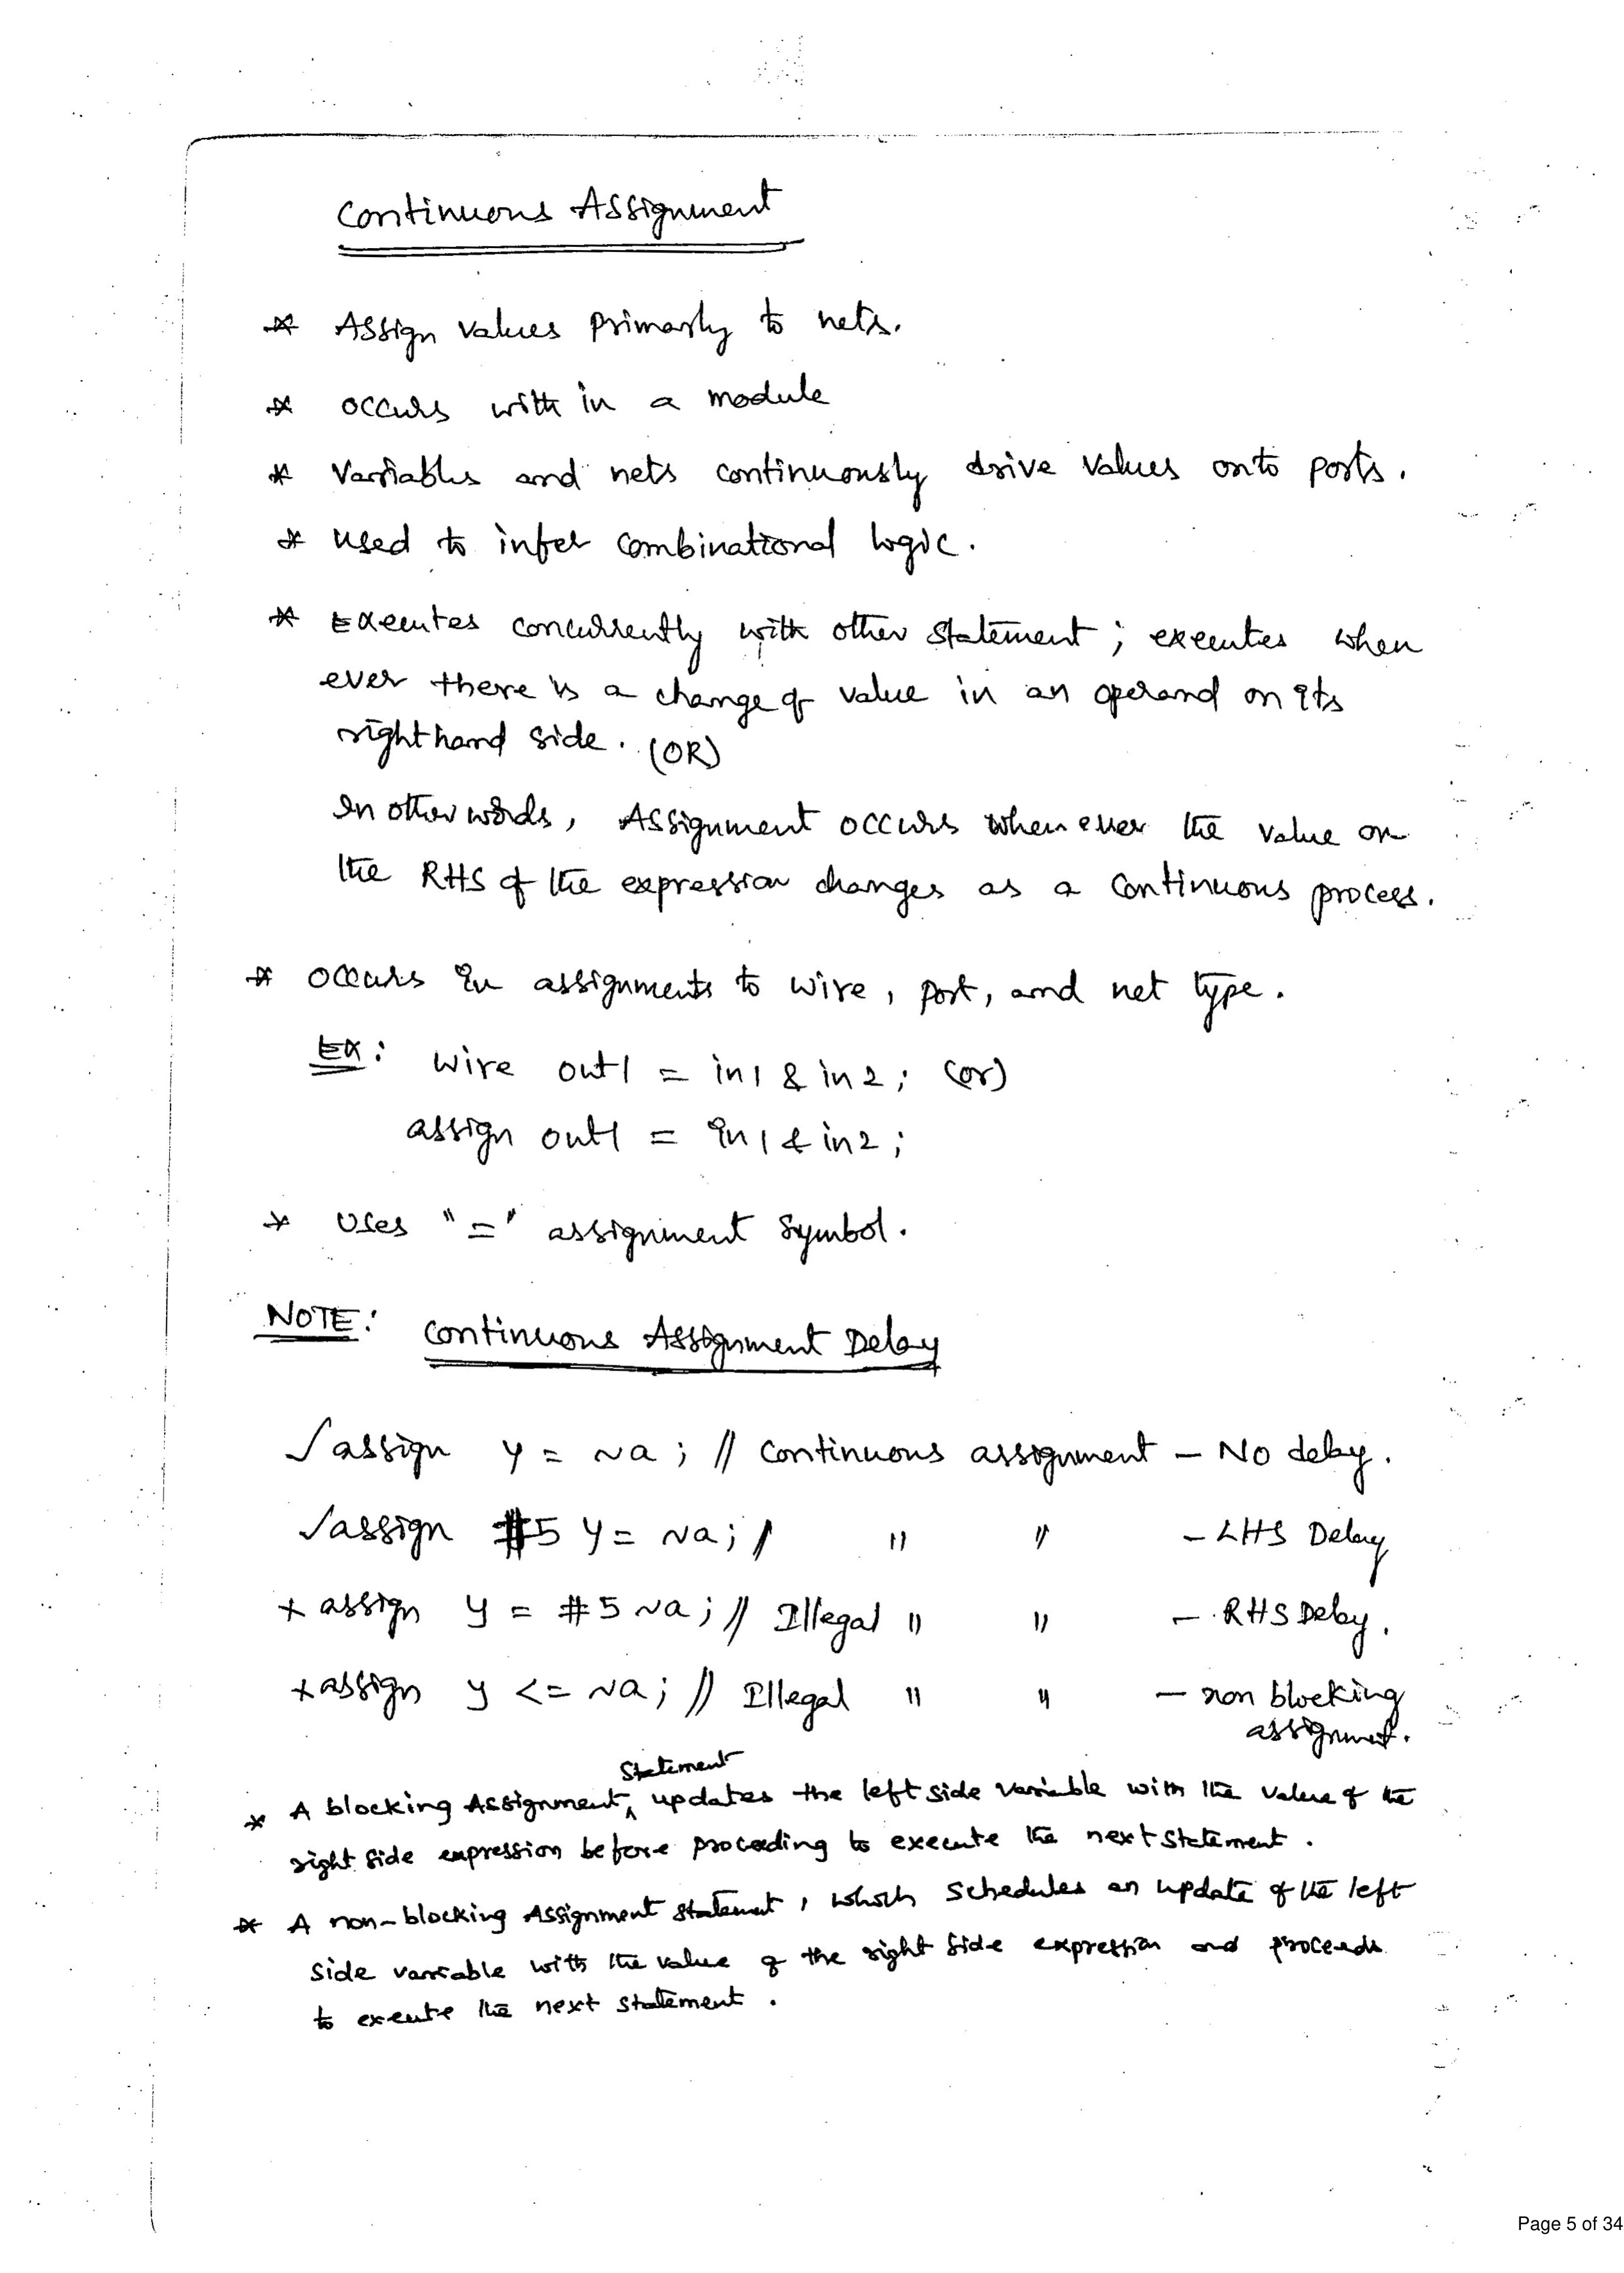 Continuous Assignment
* Assign values primarly to nets.
* occurs with in a module
* Variables and nets continuously drive values onto ports.
* used to infer combinational logic.
* Executes concurrently with other statement; executes when
ever there is a change of value in an operand on its
right hand side. (OR)
In other words, Assignment occurs when ever the value on
the RHS of the expression changes as a continuous process.
* occurs in assignments to wire, port, and net type.
Ex: wire out1 = in1 & in2; (or)
assign out1 = in1 & in2;
* Uses "=" assignment symbol.
NOTE: Continuous Assignment Delay
√ assign y = ~a; // continuous assignment - No delay.
√ assign #5 y = ~a; // " " - LHS Delay
x assign y = #5 ~a; // Illegal " " - RHS Delay.
x assign y <= ~a; // Illegal " " - non blocking
assignment.
* A blocking Assignment statement updates the left side variable with the value of the
right side expression before proceeding to execute the next statement.
* A non-blocking Assignment statement, which schedules an update of the left
side variable with the value of the right side expression and proceeds
to execute the next statement.
Page 5 of 34